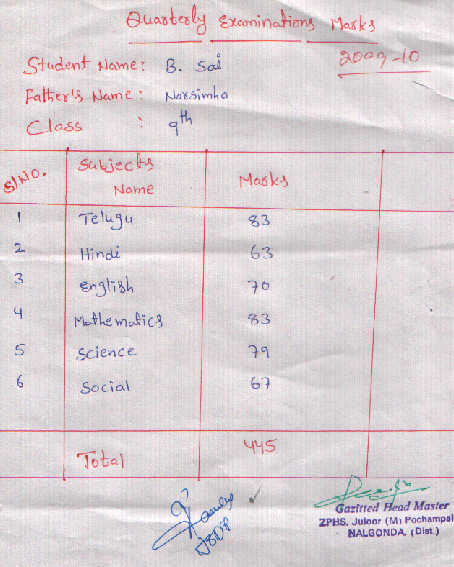 Quarterly Examinations Marks
2009-10
Student Name: B. Sai
Father's Name: Narsimha
Class : 9th
Sl No. Subjects Name Marks
1 Telugu 83
2 Hindi 63
3 English 70
4 Mathematics 83
5 Science 79
6 Social 67
Total 445
Gazitted Head Master
ZPHS, Juloor (M) Pochampal
NALGONDA, (Dist.)